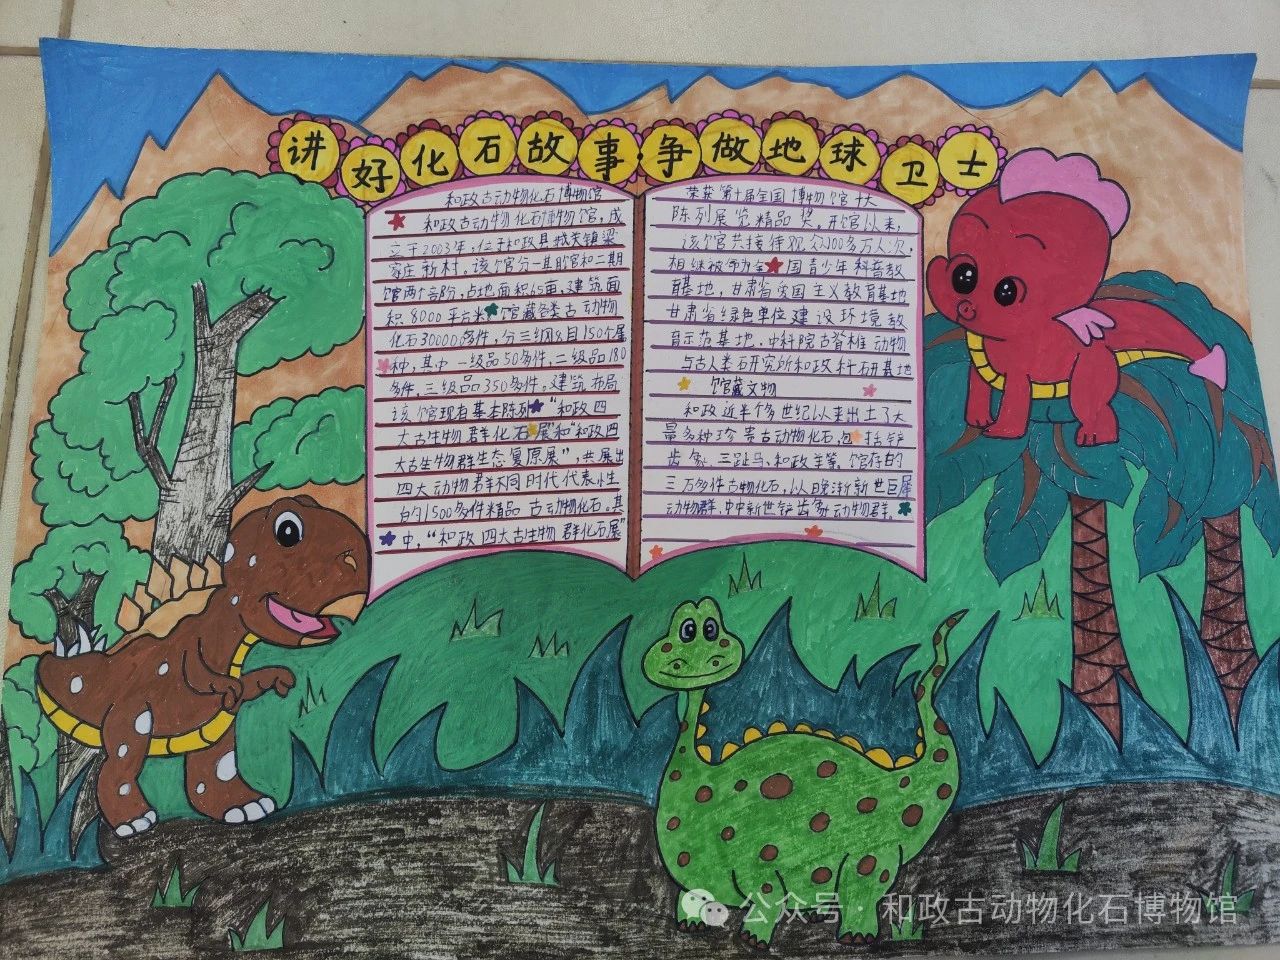 讲好化石故事·争做地球卫士
和政古动物化石博物馆
和政古动物化石博物馆，成
立于2003年，位于和政县城关镇梁
家庄新村，该馆分一期馆和二期
馆两个部分，占地面积65亩，建筑面
积8000平方米 馆藏各类古动物
化石30000多件，分三纲8目150个属
种，其中一级品50多件，二级品180
多件，三级品350多件。建筑布局
该馆现有基本陈列 “和政四
大古生物群化石展”和“和政四
大古生物群生态复原展”，共展出
四大动物群不同时代代表性
的1500多件精品古动物化石。其
中，“和政四大古生物群化石展”
荣获第十届全国博物馆十大
陈列展览精品奖。开馆以来，
该馆共接待观众100多万人次，
相继被命为全 国青少年科普教
育基地，甘肃省爱国主义教育基地
甘肃省绿色单位建设环境教
育示范基地，中科院古脊椎动物
与古人类石研究所和政科研基地
馆藏文物
和政近半个多世纪以来出土了大
量多种珍贵古动物化石，包括铲
齿象、三趾马、和政羊等。馆存的
三万多件古物化石，以晚渐新世巨犀
动物群，中中新世铲齿象动物群。
公众号·和政古动物化石博物馆